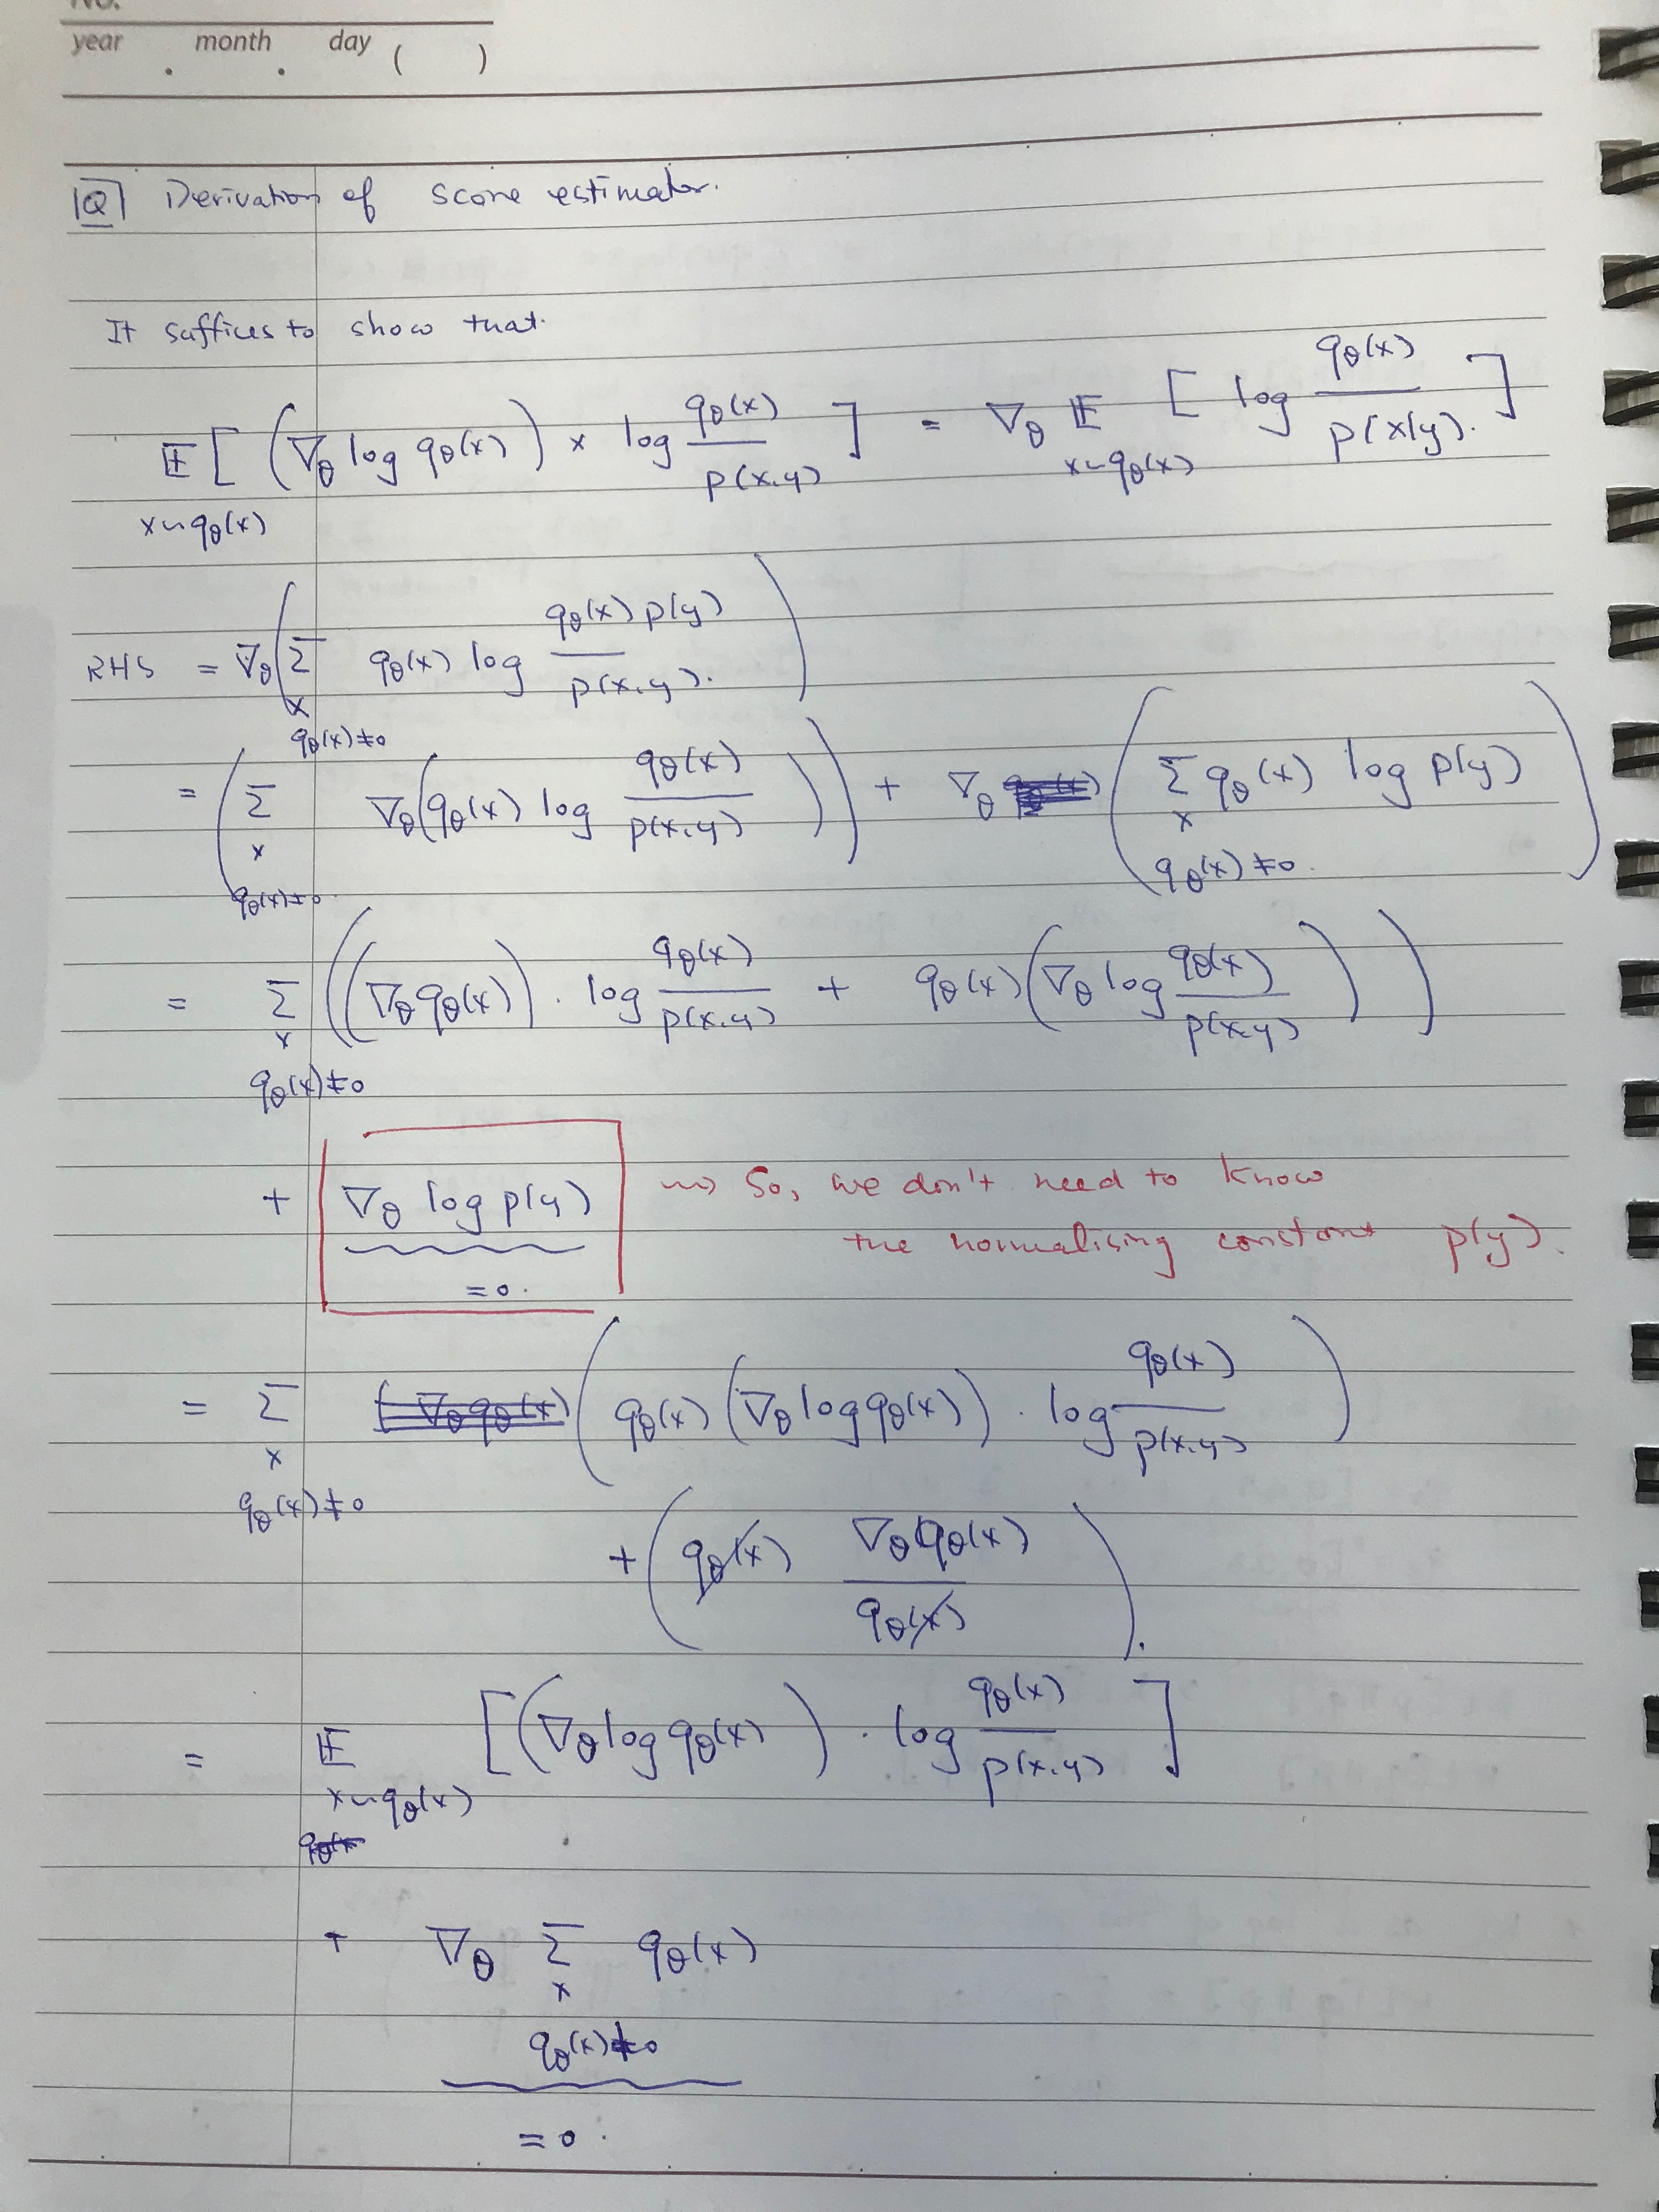 No.
year . month . day ( )
[Q] Derivation of score estimator.
It suffices to show that.
𝔼_{x~q_θ(x)} [ (∇_θ log q_θ(x)) × log q_θ(x)/p(x,y) ] = ∇_θ 𝔼_{x~q_θ(x)} [ log q_θ(x)/p(x|y). ]
RHS = ∇_θ ( Σ_{x q_θ(x)≠0} q_θ(x) log q_θ(x) p(y)/p(x,y). )
= ( Σ_{x q_θ(x)≠0} ∇_θ ( q_θ(x) log q_θ(x)/p(x,y) ) ) + ∇_θ ( Σ_{x q_θ(x)≠0.} q_θ(x) log p(y) )
= Σ_{x q_θ(x)≠0} ( (∇_θ q_θ(x)) · log q_θ(x)/p(x,y) + q_θ(x) ( ∇_θ log q_θ(x)/p(x,y) ) )
+ ∇_θ log p(y) ⇝ So, we don't need to know
= 0. the normalising constant p(y).
= Σ_{x q_θ(x)≠0} ( q_θ(x) (∇_θ log q_θ(x)) · log q_θ(x)/p(x,y) )
+ ( q_θ(x) ∇_θ q_θ(x)/q_θ(x) ).
= 𝔼_{x~q_θ(x)} [ (∇_θ log q_θ(x)) · log q_θ(x)/p(x,y) ]
+ ∇_θ Σ_{x q_θ(x)≠0} q_θ(x)
= 0.